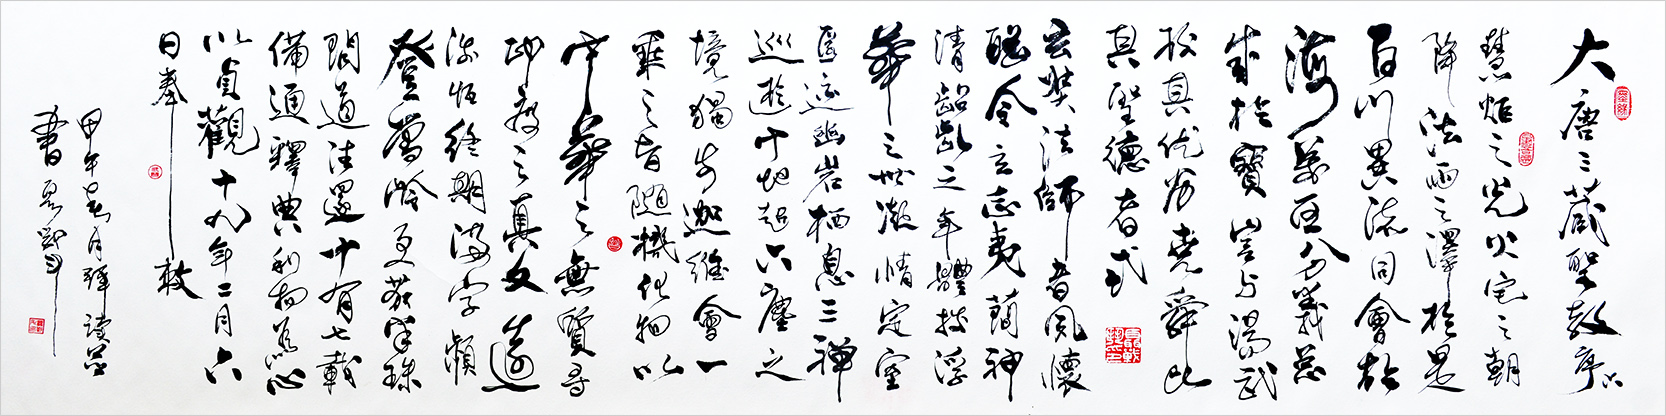 大唐三藏聖教序
慧炬之光火宅之朝
降法雨之澤於是
百川異流同會於
海萬區分義總
成於實豈與湯武
校其優劣堯舜比
其聖德者哉
玄奘法師者夙懷
聰令立志夷簡神
清齠齔之年體拔浮
華之世凝情定室
匿迹幽岩栖息三禅
巡遊十地超六塵之
境獨步迦維會一
乘之旨隨機化物以
中華之無質尋
印度之真文遠
涉恒終期滿字頻
登嶺更獲半珠
問道往還十有七載
備通釋典利物為心
以貞觀十九年二月六
日奉敕
甲午春月